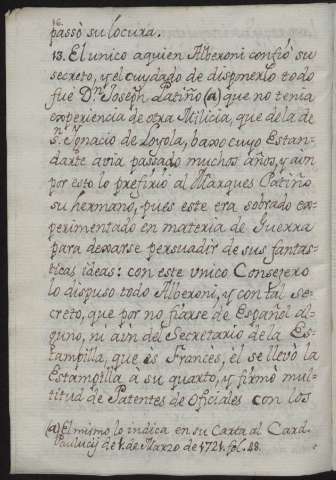 16.
passò su locura.
13. El unico aquien Alberoni confiò su
secreto, y el cuydado de disponerlo todo
fuè Dn. Joseph Patiño (a) que no tenia
experiencia de otra Milicia, que de la de
Sn. Ignacio de Loyola, baxo cuyo Estan-
darte avia passado muchos años, y aun
por esto lo prefirio al Marques Patiño
su hermano, pues este era sobrado ex-
perimentado en materia de Guerra
para dexarse persuadir de sus fantas-
ticas ideas: con este unico Consegero
lo dispuso todo Alberoni, y con tal se-
creto, que por no fiarse de Español al-
guno, ni aùn del Secretario de la Es-
tampilla, que ès Frances, èl se llevò la
Estampilla à su quarto, y firmò mul-
titud de Patentes de Oficiales con los
(a) El mismo lo indica en su Carta al Card.
Paulucij de 1. de Marzo de 1721. fol. 48.